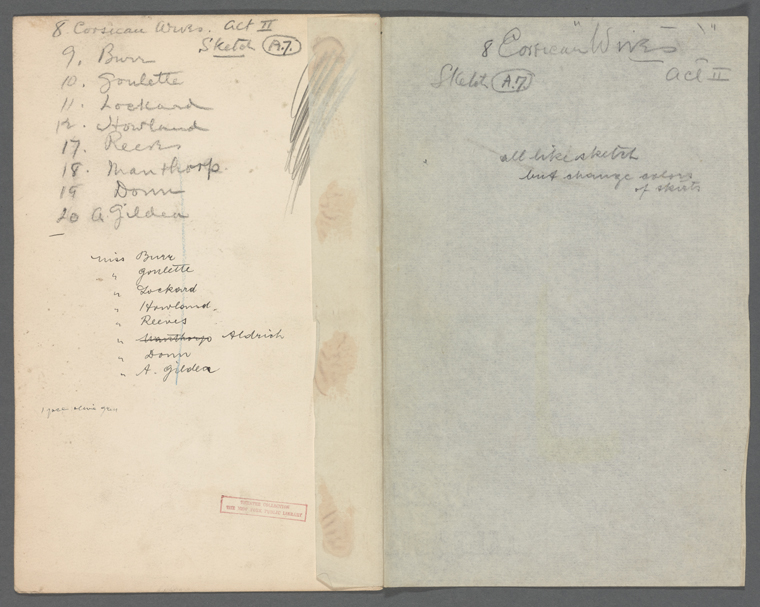 8 Corsican Wives. Act II
Sketch A.7.
9. Burr
10. Goulette
11. Lockard
12. Howland
17. Reeves
18. Manthorp.
19 Donn
20 A Gilden
Miss Burr
" " Goulette
" Lockard
" Howland
" Reeves
" Manthorp Aldrich
" Donn
" A. Gilden
THEATRE COLLECTION
THE NEW YORK PUBLIC LIBRARY
8 "Corsican Wives"
Sketch A.7. Act II
all like sketch
but change colors
of skirts